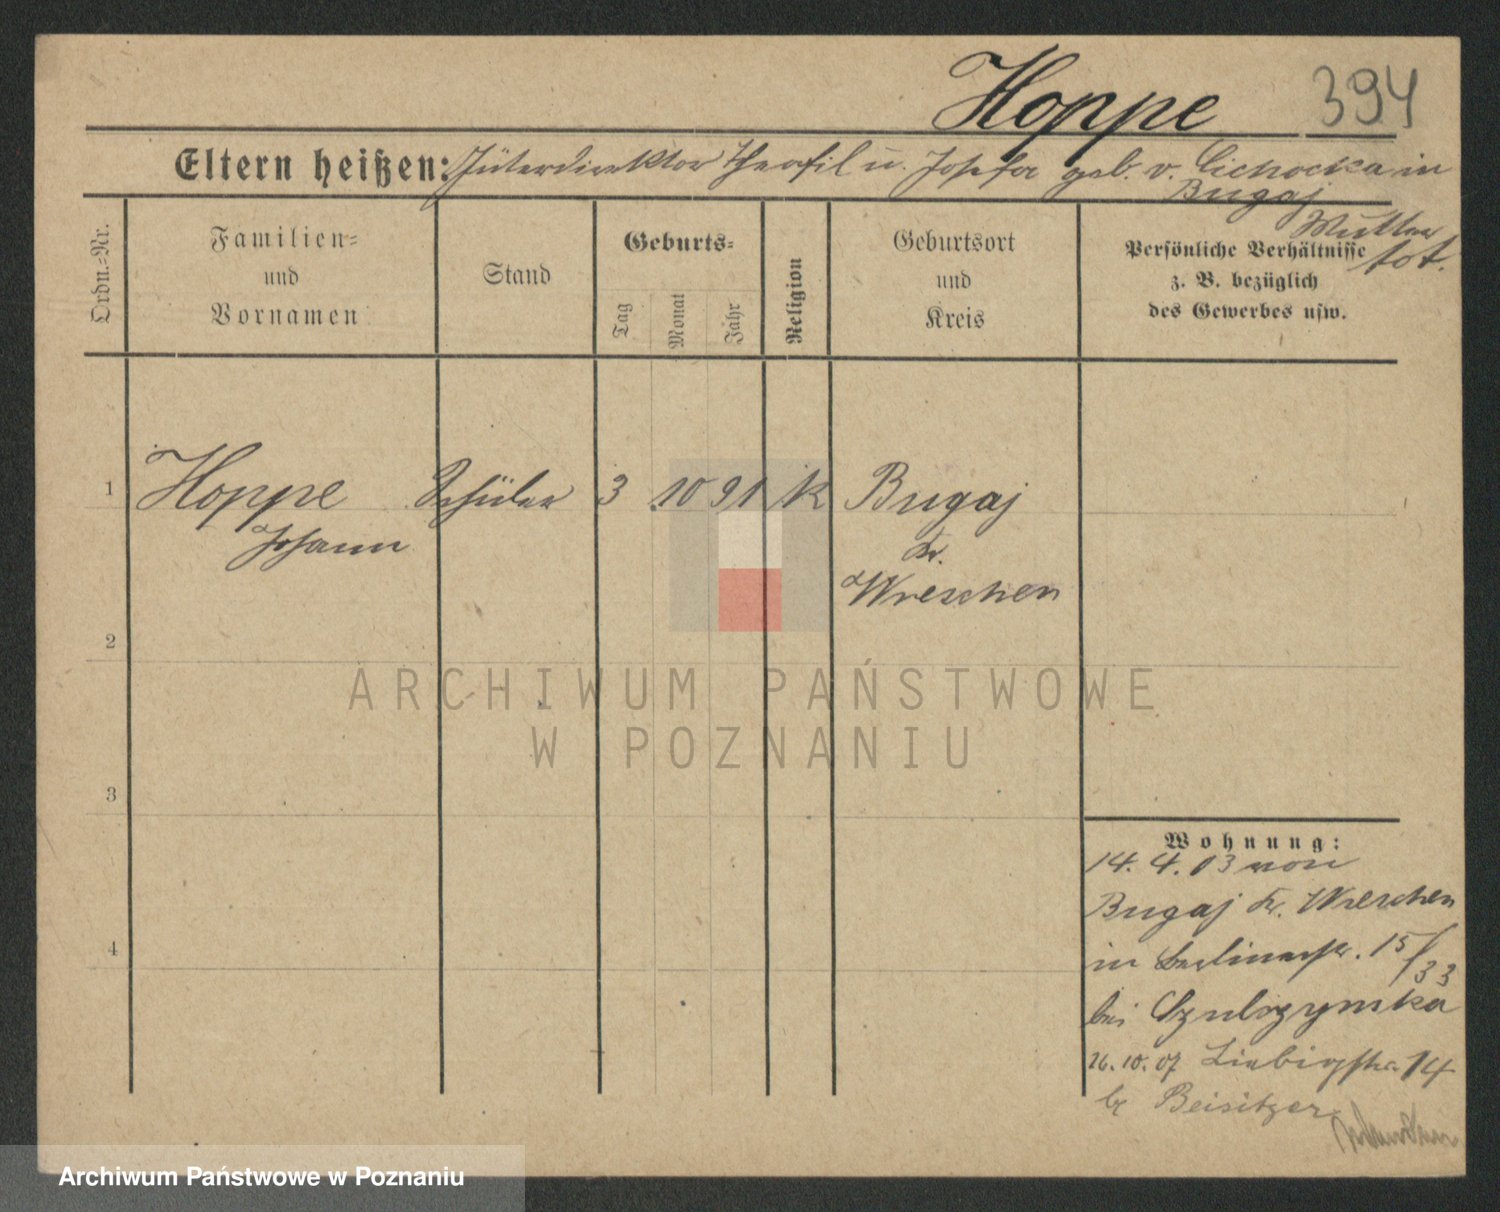 Hoppe 394
Eltern heißen: Güterdirektor Theofil u. Josefa geb. v. Cichocka in
Bugaj
Mutter
tot.
Ordn.=Nr.
Familien=
und
Vornamen
Stand
Geburts=
Tag
Monat
Jahr
Religion
Geburtsort
und
Kreis
Persönliche Verhältnisse
z. B. bezüglich
des Gewerbes usw.
1 Hoppe Schüler 3 10 91 K Bugaj
Johann
Kr.
Wreschen
2
ARCHIWUM PAŃSTWOWE
W POZNANIU
3
4
Wohnung:
14. 4. 03 von
Bugaj Kr. Wreschen
in Berlinerstr. 15/33
bei
26. 10. 07 Liebigstr. 14
b. Beisitzer
Archiwum Państwowe w Poznaniu